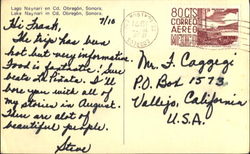 Lago Naynari en Cd. Obregón, Sonora.
Lake Naynari in Cd. Obregón, Sonora.
Hi Frank, 7/18
The trip has been
hot but very informative.
Food is fantastic. Sure
beats La Pinata. I'll
bore you with all of
my stories in August.
There are alot of
beautiful people.
Steve
80 CTS
CORREO
AEREO
Mr. F. Caggegi
P.O. Box 1573
Vallejo, California
U.S.A.